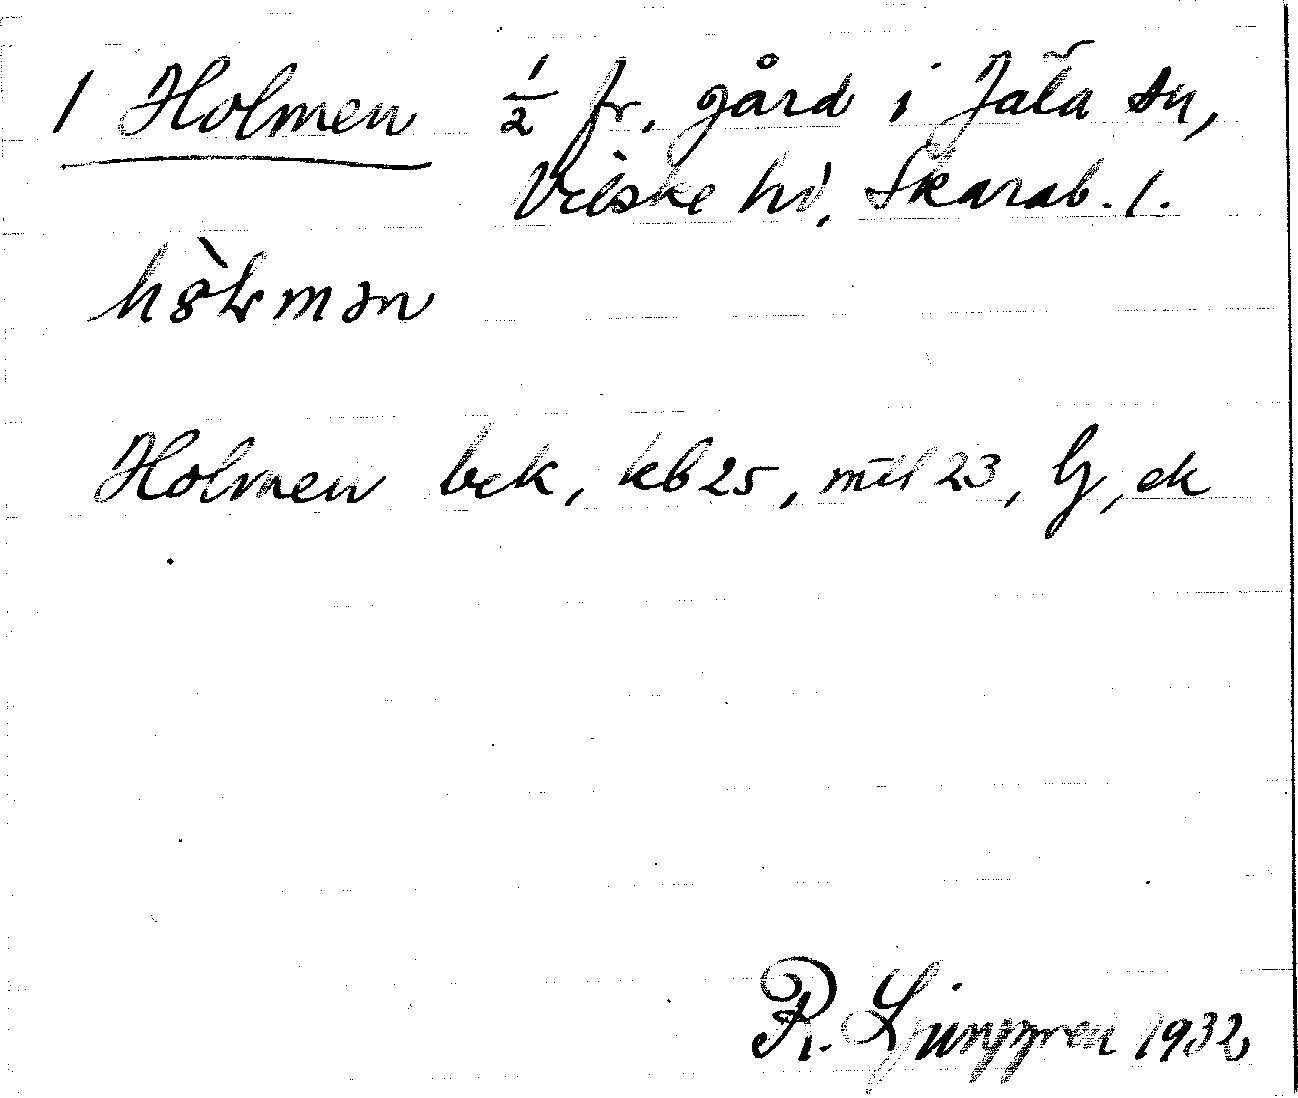 1 Holmen ½ fr. gård i Jäla sn,
Vilske hd, Skarab. l.
Holmen bek, kb 25, mtl 23, lj, ek
R. Ljunggren 1932